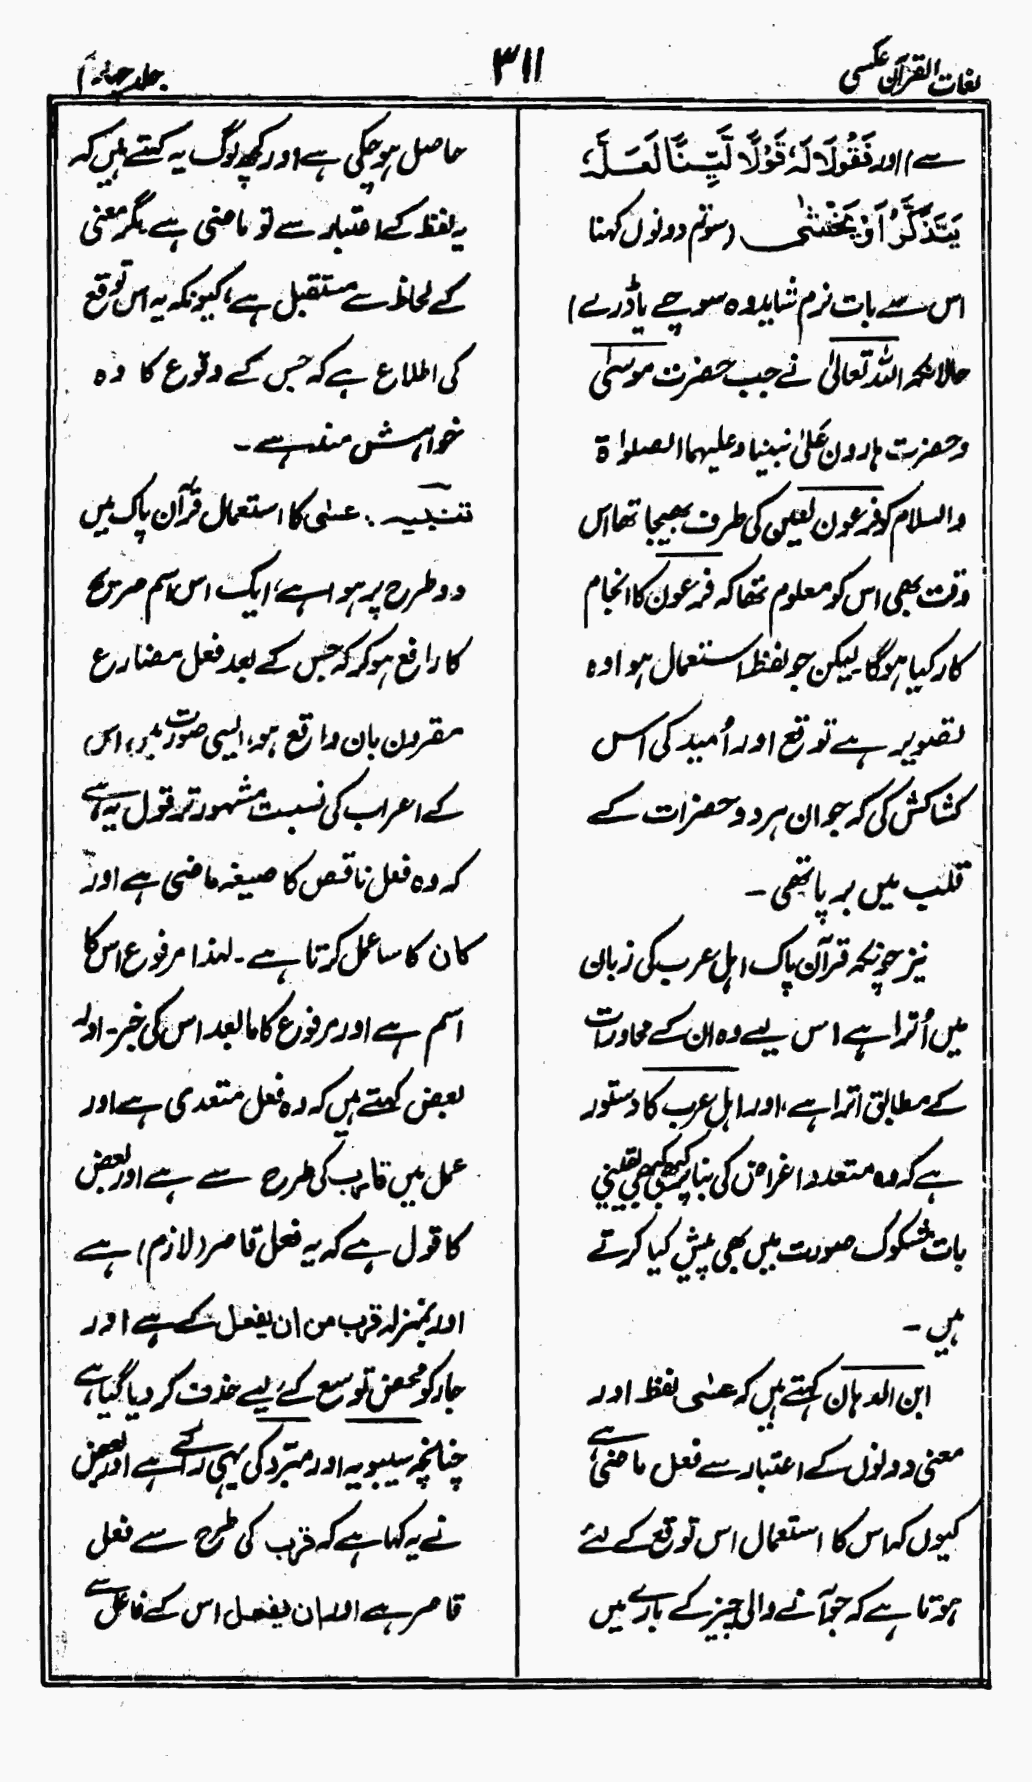 لغات القرآن عکسی
۳۱۱
جلد چہارم
سے) اور فَقُولَا لَهٗ قَوْلًا لَّيِّنًا لَّعَلَّهٗ
يَتَذَكَّرُ اَوْ يَخْشٰى (سو تم دونوں کہنا
اس سے بات نرم شاید وہ سوچے یا ڈرے)
حالانکہ اللہ تعالیٰ نے جب حضرت موسیٰ
و حضرت ہارون علیٰ نبینا و علیہما الصلوٰۃ
والسلام کو فرعون لعین کی طرف بھیجا تھا اس
وقت بھی اس کو معلوم تھا کہ فرعون کا انجام
کار کیا ہوگا لیکن جو لفظ استعمال ہوا وہ
تصویر ہے توقع اور اُمید کی اس
کشاکش کی کہ جو ان ہر دو حضرات کے
قلب میں برپا تھی ۔
نیز چونکہ قرآن پاک اہل عرب کی زبان
میں اُترا ہے اس لیے وہ ان کے محاورات
کے مطابق اترا ہے، اور اہل عرب کا دستور
ہے کہ وہ متعدد اغراض کی بنا پر کبھی کبھی یقینی
بات مشکوک صورت میں بھی پیش کیا کرتے
ہیں ۔
ابن الدہان کہتے ہیں کہ عسٰی لفظ اور
معنی دونوں کے اعتبار سے فعل ماضی ہے
کیوں کہ اس کا استعمال اس توقع کے لئے
ہوتا ہے کہ جو آنے والی چیز کے بارے میں
حاصل ہو چکی ہے اور کچھ لوگ یہ کہتے ہیں کہ
یہ لفظ کے اعتبار سے تو ماضی ہے مگر معنی
کے لحاظ سے مستقبل ہے، کیونکہ یہ اس توقع
کی اطلاع ہے کہ جس کے وقوع کا وہ
خواہش مند ہے ۔
تنبیہ :۔ عسٰی کا استعمال قرآن پاک میں
دو طرح پر ہوا ہے، ایک اس اسم صریح
کا رافع ہو کر کہ جس کے بعد فعل مضارع
مقرون بان واقع ہو، ایسی صورت میں، اس
کے اعراب کی نسبت مشہور تر قول یہ ہے
کہ وہ فعل ناقص کا صیغہ ماضی ہے اور
کان کا سا عمل کرتا ہے ۔ لہذا مرفوع اس کا
اسم ہے اور مرفوع کا مابعد اس کی خبر۔ اور
بعض کہتے ہیں کہ وہ فعل متعدی ہے اور
عمل میں قارب کی طرح سے ہے اور بعض
کا قول ہے کہ یہ فعل قاصر (لازم) ہے
اور بمنزلہ قرب من ان یفعل کے ہے اور
جار کو محض توسیع کے لیے حذف کر دیا گیا ہے
چنانچہ سیبویہ اور مبرّد کی یہی رائے ہے اور بعض
نے یہ کہا ہے کہ قرب کی طرح سے فعل
قاصر ہے اور ان یفعل اس کے فاعل سے